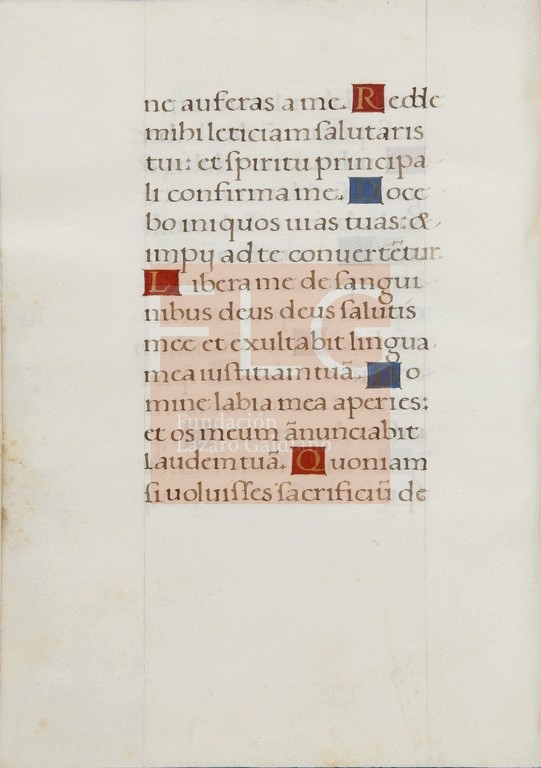 ne auferas a me. Redde
mihi leticiam salutaris
tui: et spiritu principa
li confirma me. Doce
bo iniquos uias tuas: &
impij ad te conuertẽtur.
Libera me de sangui
nibus deus deus salutis
mee et exultabit lingua
mea iustitiam tuã. Do
mine labia mea aperies:
et os meum ãnunciabit
laudem tuã. Quoniam
si uoluisses sacrificiũ de
FLG
Fundación
Lázaro Galdiano